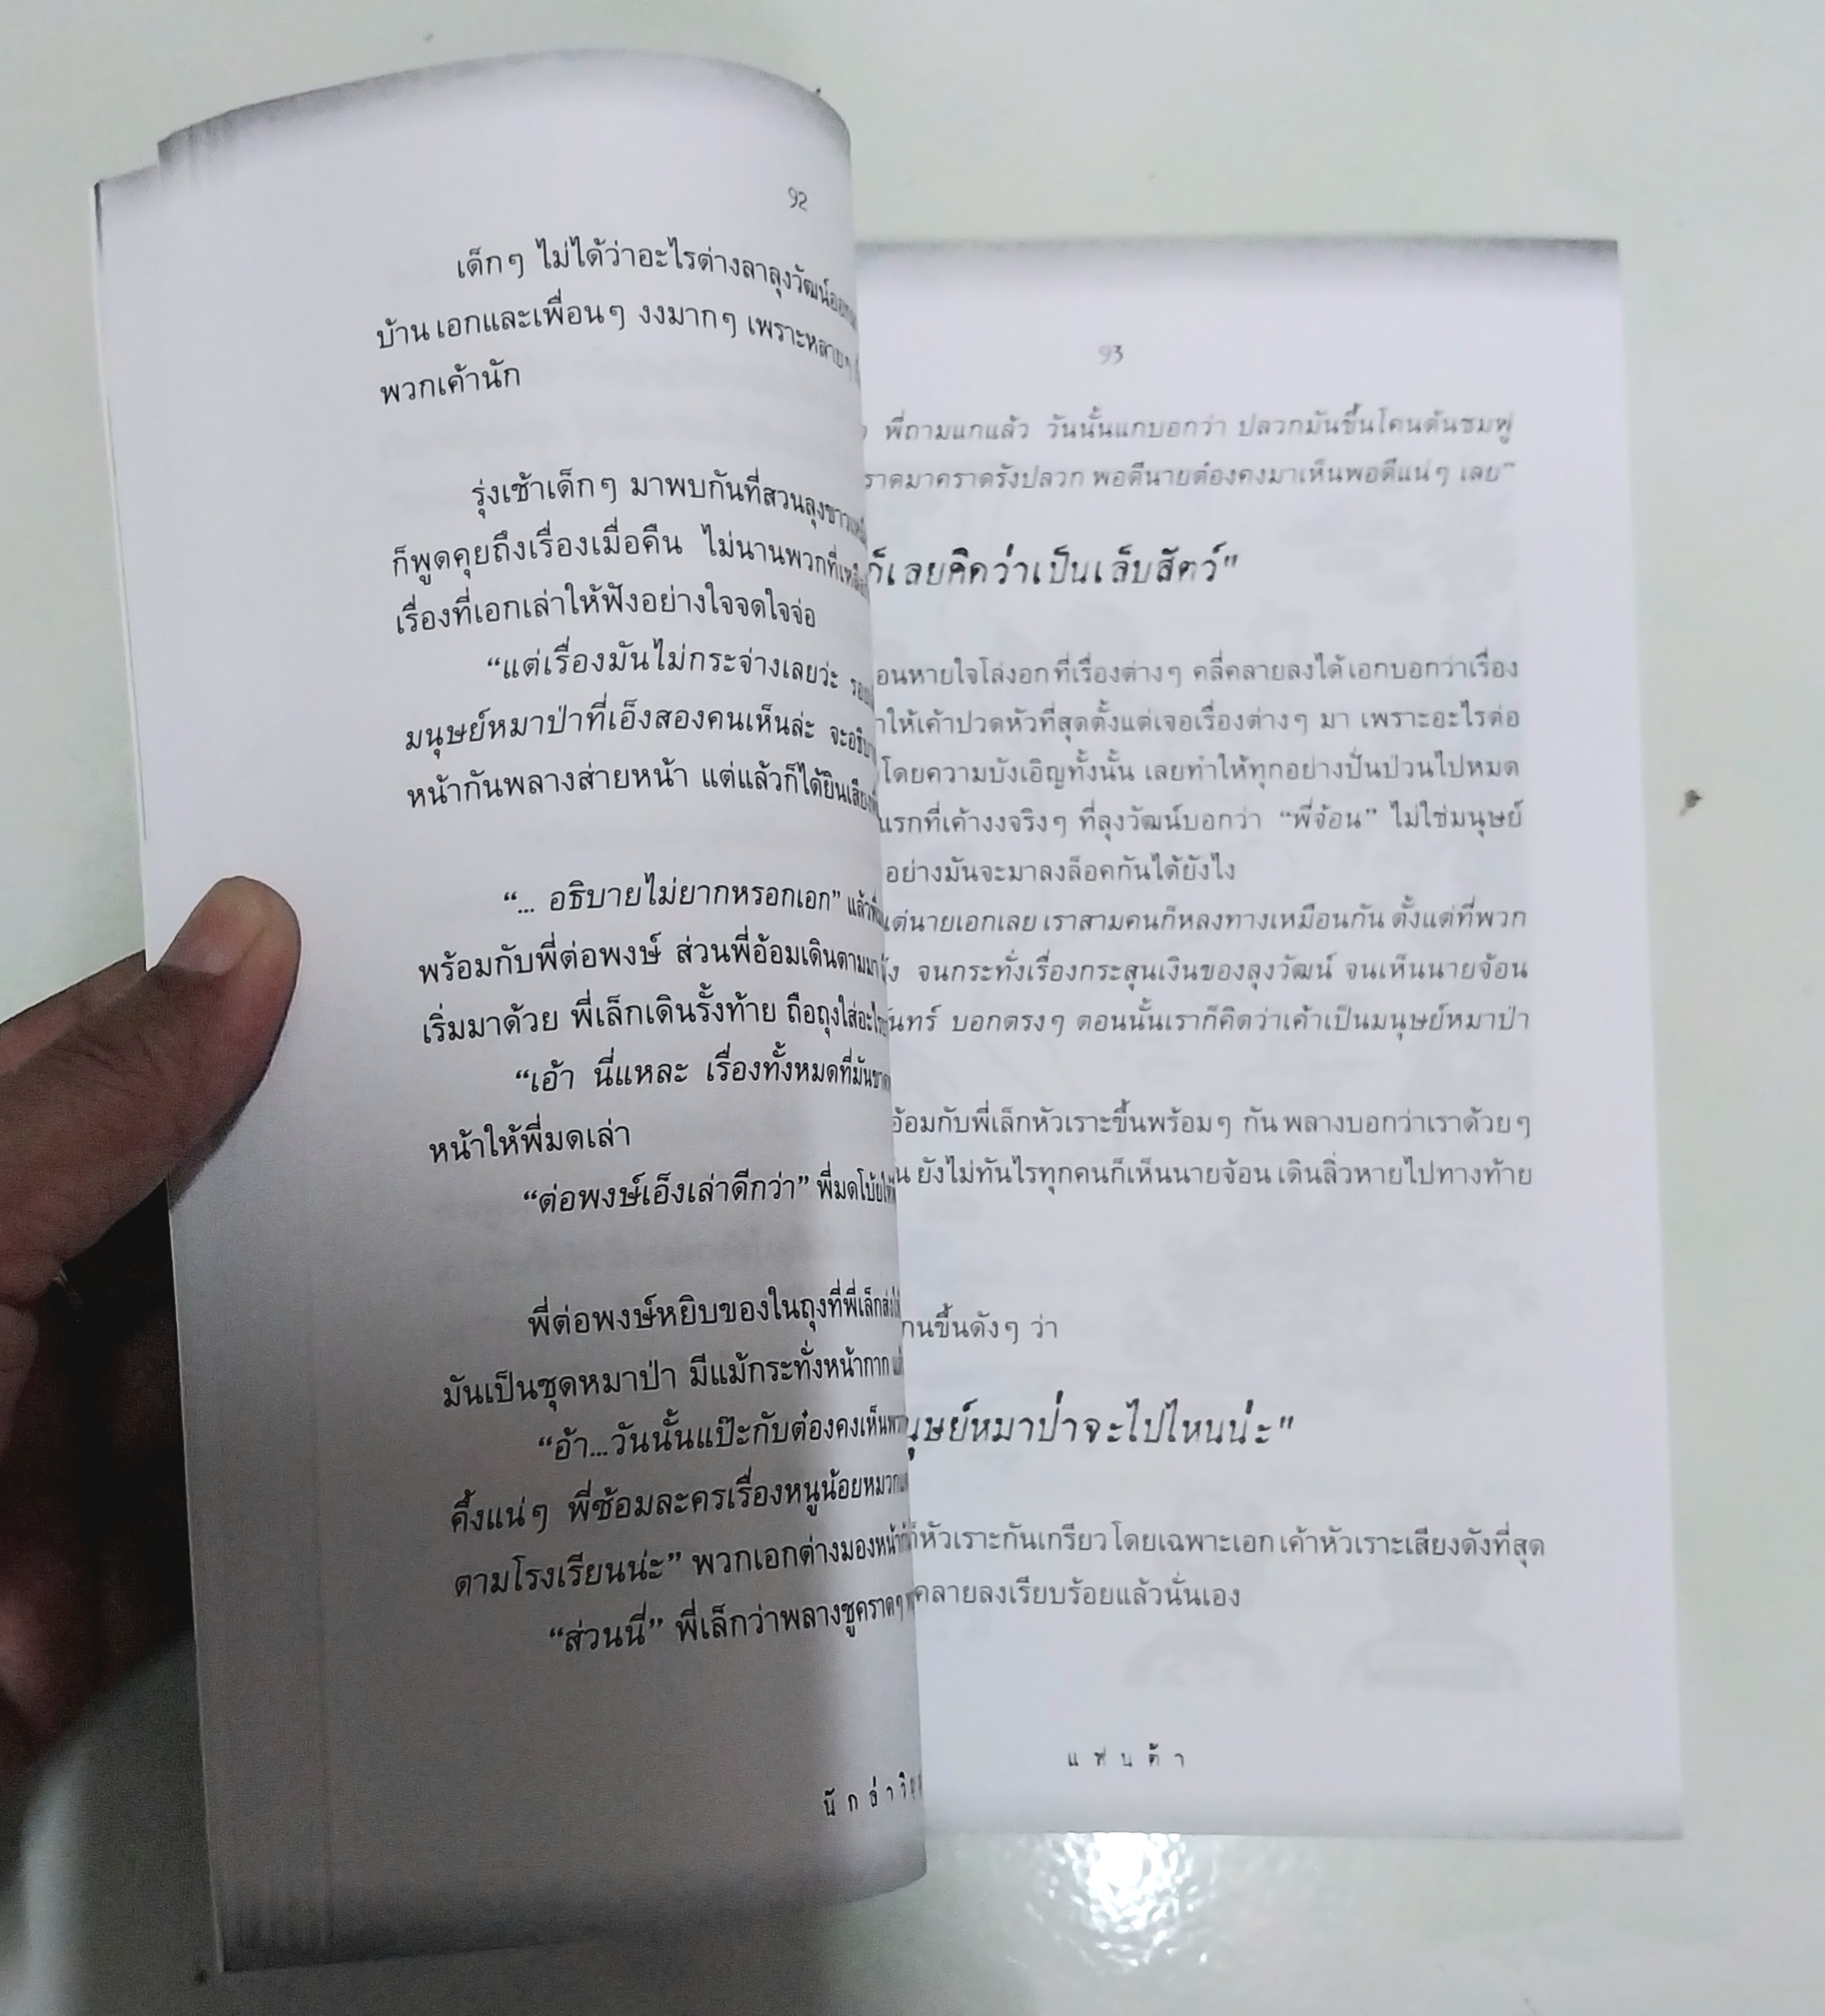 92
เด็กๆ ไม่ได้ว่าอะไรต่างลาลุงวัฒน์
บ้าน เอกและเพื่อนๆ งงมากๆ เพราะหลายๆ
พวกเค้านัก
รุ่งเช้าเด็กๆ มาพบกันที่สวนลุงขาว
ก็พูดคุยถึงเรื่องเมื่อคืน ไม่นานพวกที่
เรื่องที่เอกเล่าให้ฟังอย่างใจจดใจจ่อ
“แต่เรื่องมันไม่กระจ่างเลยว่ะ
มนุษย์หมาป่าที่เอ็งสองคนเห็นล่ะ
หน้ากันพลางส่ายหน้า แต่แล้วก็ได้ยินเสียง
“... อธิบายไม่ยากหรอกเอก” แล้ว
พร้อมกับพี่ต่อพงษ์ ส่วนพี่อ้อมเดินตามมา
เริ่มมาด้วย พี่เล็กเดินรั้งท้าย ถือถุงใส่
“เอ้า นี่แหละ เรื่องทั้งหมดที่มัน
หน้าให้พี่มดเล่า
“ต่อพงษ์เอ็งเล่าดีกว่า” พี่มดโบ้ย
พี่ต่อพงษ์หยิบของในถุงที่พี่เล็ก
มันเป็นชุดหมาป่า มีแม้กระทั่งหน้ากาก
“อ้า...วันนั้นแป๊ะกับต๋องคงเห็น
คึ้งแน่ๆ พี่ซ้อมละครเรื่องหนูน้อยหมวก
ตามโรงเรียนน่ะ” พวกเอกต่างมองหน้า
“ส่วนนี่” พี่เล็กว่าพลางชูคราดๆ
นักล่า
93
พี่ถามแกแล้ว วันนั้นแกบอกว่า ปลวกมันขึ้นโคนต้นชมพู่
ราดมาคราดรังปลวก พอดีนายต๋องคงมาเห็นพอดีแน่ๆ เลย”
ก็เลยคิดว่าเป็นเล็บสัตว์”
อนหายใจโล่งอก ที่เรื่องต่างๆ คลี่คลายลงได้ เอกบอกว่าเรื่อง
ให้เค้าปวดหัวที่สุดตั้งแต่เจอเรื่องต่างๆ มา เพราะอะไรต่อ
โดยความบังเอิญทั้งนั้น เลยทำให้ทุกอย่างปั่นป่วนไปหมด
แรกที่เค้างงจริงๆ ที่ลุงวัฒน์บอกว่า “พี่จ้อน” ไม่ใช่มนุษย์
อย่างมันจะมาลงล็อคกันได้ยังไง
แต่นายเอกเลย เราสามคนก็หลงทางเหมือนกัน ตั้งแต่ที่พวก
จนกระทั่งเรื่องกระสุนเงินของลุงวัฒน์ จนเห็นนายจ้อน
นทร์ บอกตรงๆ ตอนนั้นเราก็คิดว่าเค้าเป็นมนุษย์หมาป่า
อ้อมกับพี่เล็กหัวเราะขึ้นพร้อมๆ กัน พลางบอกว่าเราด้วยๆ
น ยังไม่ทันไรทุกคนก็เห็นนายจ้อน เดินลิ่วหายไปทางท้าย
กนขึ้นดังๆ ว่า
นุษย์หมาป่าจะไปไหนน่ะ”
ก็หัวเราะกันเกรียว โดยเฉพาะเอก เค้าหัวเราะเสียงดังที่สุด
คลายลงเรียบร้อยแล้วนั่นเอง
แพนด้า